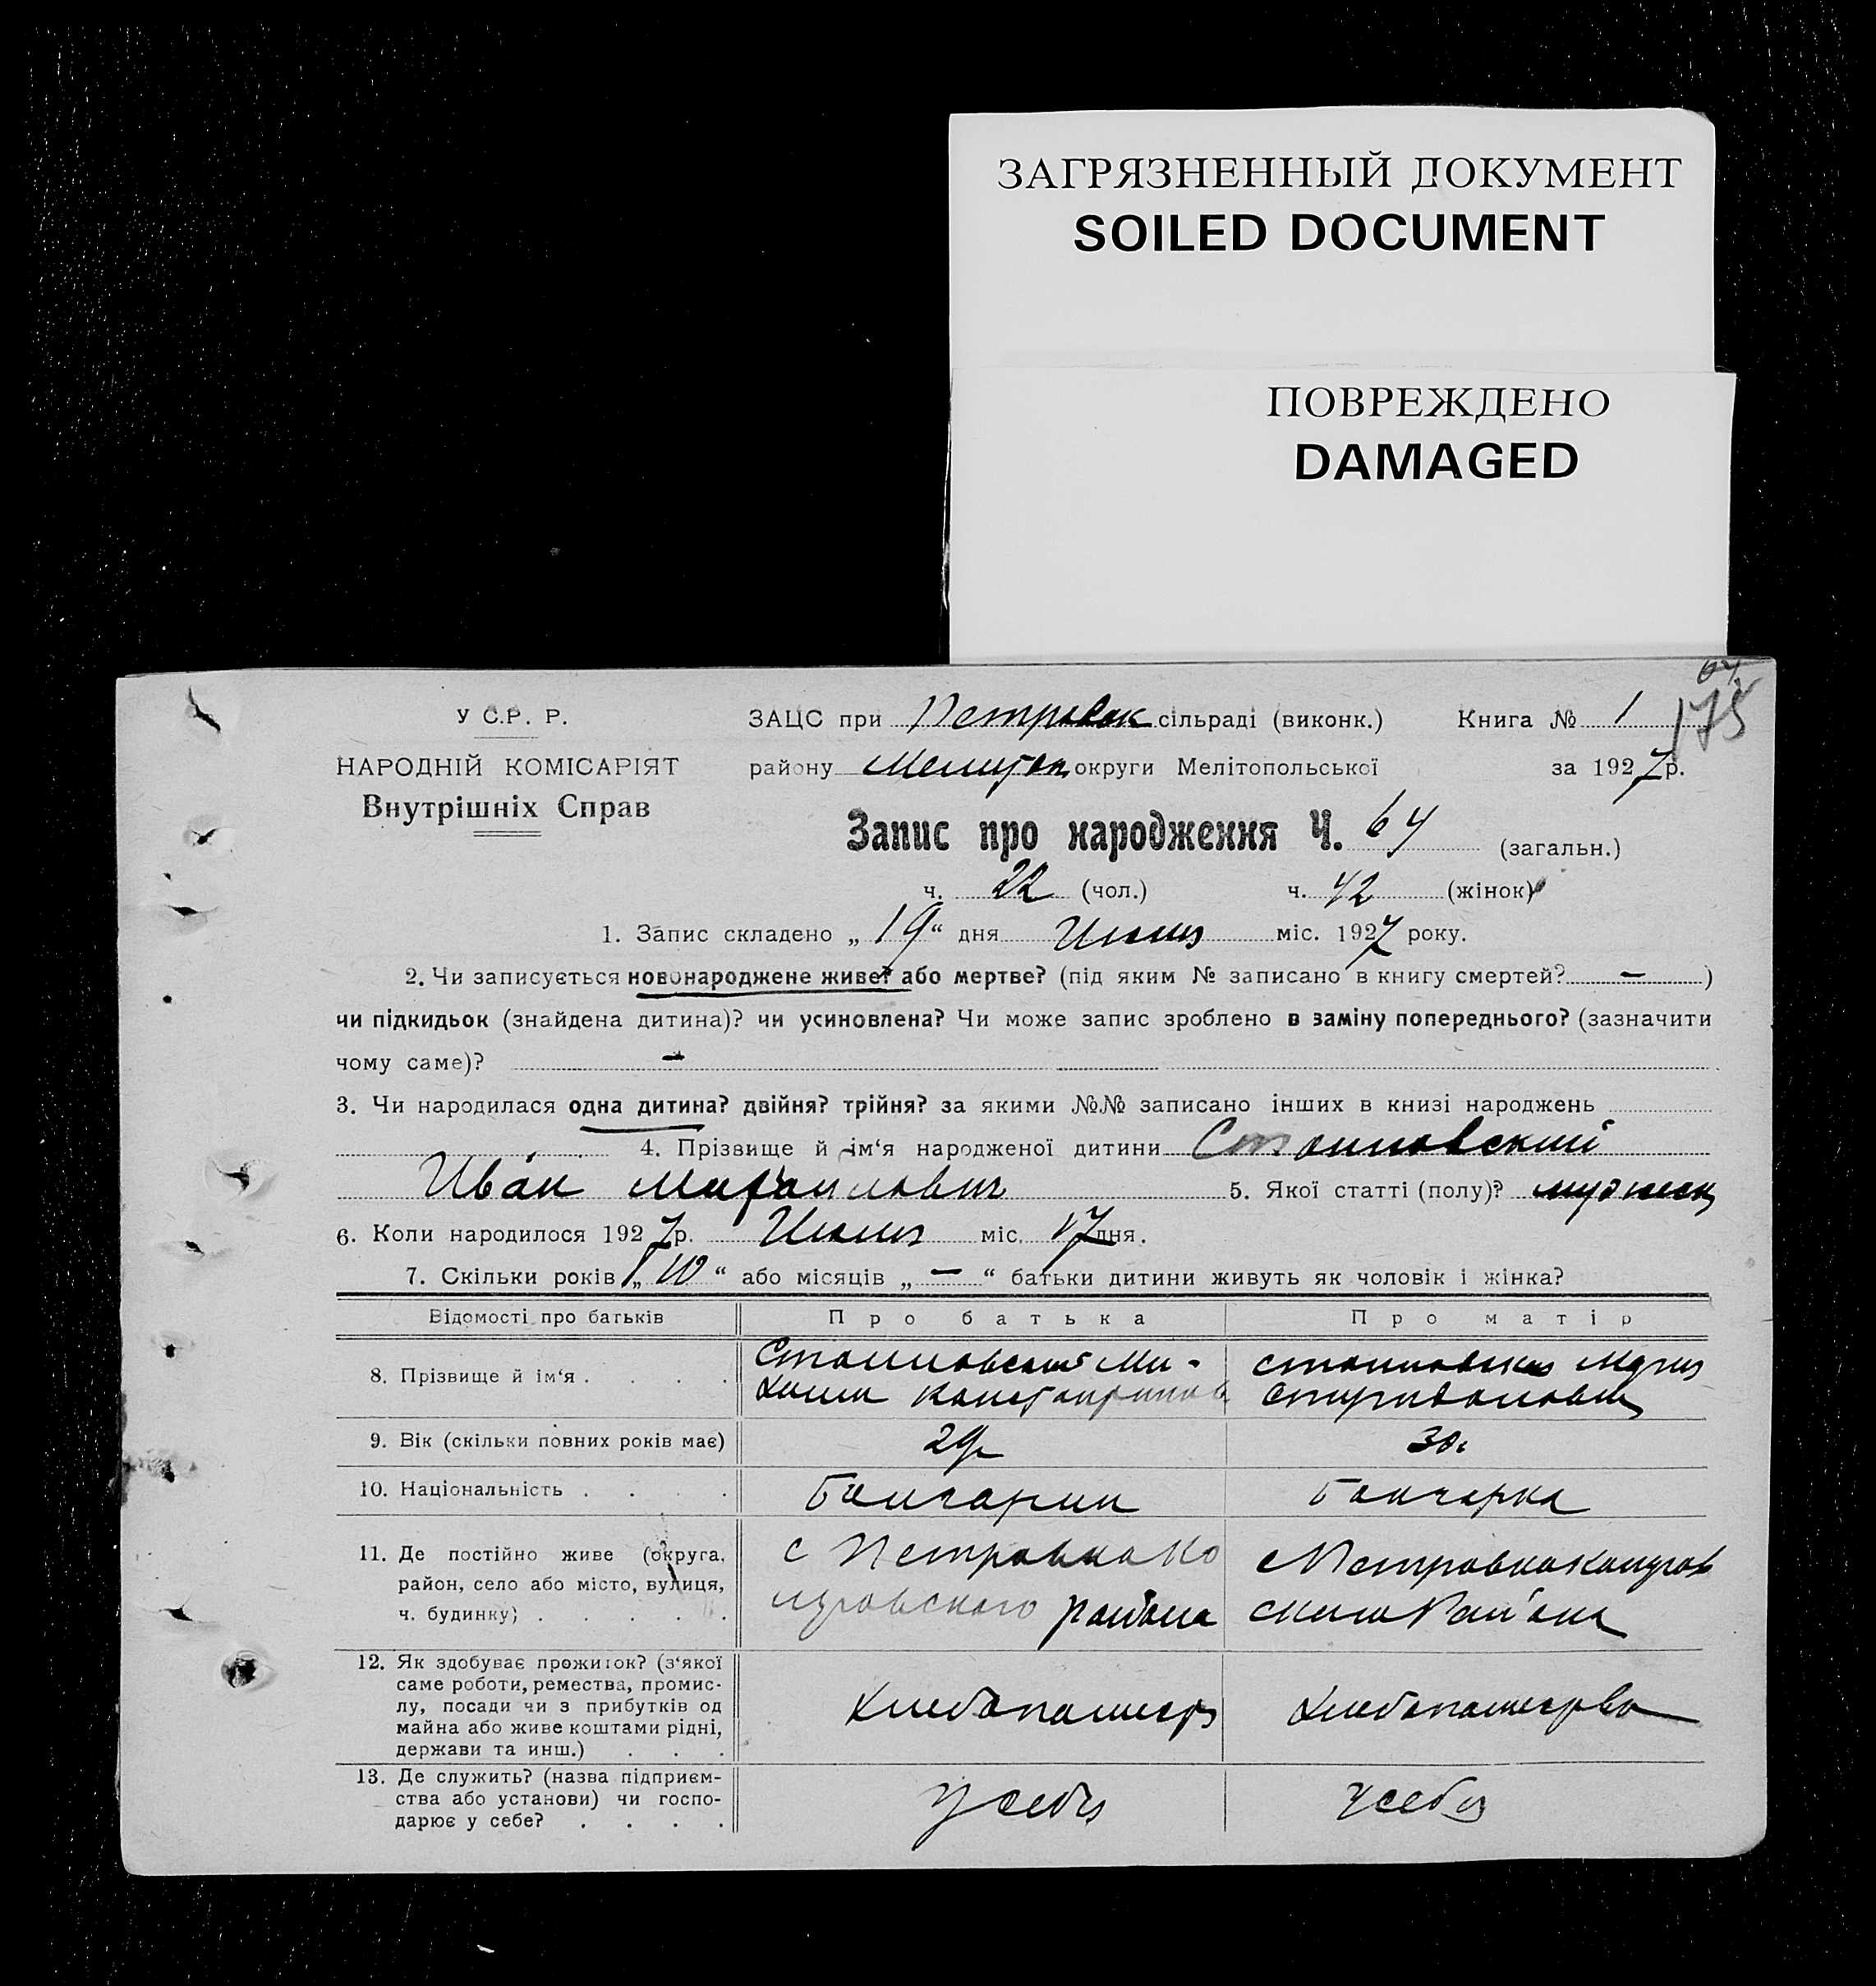 ЗАГРЯЗНЕННЫЙ ДОКУМЕНТ
SOILED DOCUMENT
ПОВРЕЖДЕНО
DAMAGED
64
175
У С.Р. Р.
НАРОДНІЙ КОМІСАРІЯТ
Внутрішніх Справ
ЗАЦС при Петровск сільраді (виконк.) Книга № 1
району округи Мелітопольської за 1927 р.
Запис про народження Ч. 64 (загальн.)
ч. 22 (чол.) ч. 42 (жінок)
1. Запис складено „19“ дня міс. 1927 року.
2. Чи записується новонароджене живе? або мертве? (під яким № записано в книгу смертей? — )
чи підкидьок (знайдена дитина)? чи усиновлена? Чи може запис зроблено в заміну попереднього? (зазначити
чому саме)? —
3. Чи народилася одна дитина? двійня? трійня? за якими №№ записано інших в книзі народжень
4. Прізвище й ім‘я народженої дитини Стоиловский
Иван Михайлович 5. Якої статті (полу)? мужск
6. Коли народилося 1927 р. міс. 17 дня.
7. Скільки років „10“ або місяців „—“ батьки дитини живуть як чоловік і жінка?
Відомості про батьків Про батька Про матір
8. Прізвище й ім‘я . . . . Стоиловский Ми- Стоиловская Мария
хаил Константинов Спиридоновн
9. Вік (скільки повних років має) 29 30
10. Національність . . . . Болгарин Болгарка
11. Де постійно живе (округа, с Петровка Ко с Петровка
район, село або місто, вулиця, района
ч. будинку) . . . . .
12. Як здобуває прожиток? (з‘якої
саме роботи, ремества, промис-
лу, посади чи з прибутків од Хлебопашеств Хлебопашество
майна або живе коштами рідні,
держави та инш.) . . .
13. Де служить? (назва підприєм-
ства або установи) чи госпо- у себя у себя
дарює у себе? . . . .